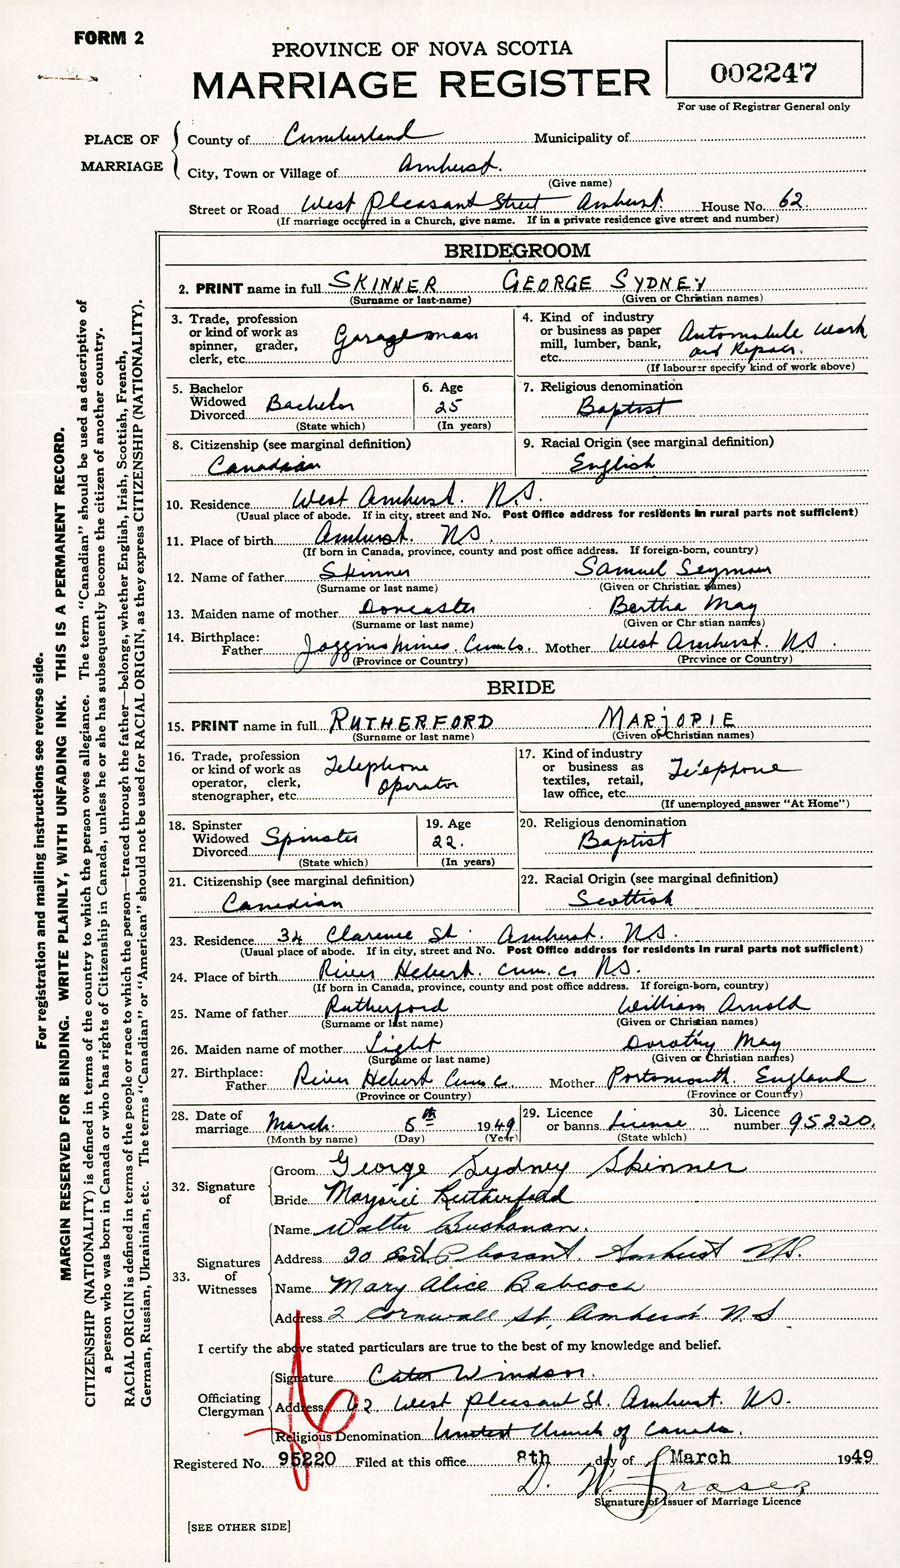 FORM 2
PROVINCE OF NOVA SCOTIA
MARRIAGE REGISTER
002247
For use of Registrar General only
PLACE OF MARRIAGE
County of Cumberland Municipality of
City, Town or Village of Amherst.
(Give name)
Street or Road West Pleasant Street Amherst House No. 62
(If marriage occurred in a Church, give name. If in a private residence give street and number)
BRIDEGROOM
2. PRINT name in full SKINNER GEORGE SYDNEY
(Surname or last-name) (Given or Christian names)
3. Trade, profession or kind of work as spinner, grader, clerk, etc. Garageman
4. Kind of industry or business as paper mill, lumber, bank, etc. Automobile Work and Repair.
(If labourer specify kind of work above)
5. Bachelor Widowed Divorced Bachelor
(State which)
6. Age 25
(In years)
7. Religious denomination
Baptist
8. Citizenship (see marginal definition)
Canadian
9. Racial Origin (see marginal definition)
English
10. Residence West Amherst. N.S.
(Usual place of abode. If in city, street and No. Post Office address for residents in rural parts not sufficient)
11. Place of birth Amherst. N.S.
(If born in Canada, province, county and post office address. If foreign-born, country)
12. Name of father Skinner Samuel Seymour
(Surname or last name) (Given or Christian names)
13. Maiden name of mother Doncaster Bertha May
(Surname or last name) (Given or Christian names)
14. Birthplace:
Father Joggins Mines. Cum Co. Mother West Amherst. N.S
(Province or Country) (Province or Country)
BRIDE
15. PRINT name in full RUTHERFORD MARJORIE
(Surname or last name) (Given or Christian names)
16. Trade, profession or kind of work as operator, clerk, stenographer, etc. Telephone Operator
17. Kind of industry or business as textiles, retail, law office, etc. Telephone
(If unemployed answer "At Home")
18. Spinster Widowed Divorced Spinster
(State which)
19. Age 22.
(In years)
20. Religious denomination
Baptist
21. Citizenship (see marginal definition)
Canadian
22. Racial Origin (see marginal definition)
Scottish
23. Residence 34 Clarence St. Amherst. N.S.
(Usual place of abode. If in city, street and No. Post Office address for residents in rural parts not sufficient)
24. Place of birth River Hebert. Cum. Co N.S.
(If born in Canada, province, county and post office address. If foreign-born, country)
25. Name of father Rutherford William Arnold
(Surname or last name) (Given or Christian names)
26. Maiden name of mother Light Dorothy May
(Surname or last name) (Given or Christian names)
27. Birthplace:
Father River Hebert Cum C. Mother Portsmouth. England
(Province or Country) (Province or Country)
28. Date of marriage March. 5th 1949
(Month by name) (Day) (Year)
29. Licence or banns License
(State which)
30. Licence number 95220.
32. Signature of
Groom George Sydney Skinner
Bride Marjorie Rutherford
33. Signatures of Witnesses
Name Walter Buchanan.
Address 20 East Pleasant. Amherst N.S.
Name Mary Alice Babcock
Address 2 Cornwall St. Amherst N.S
I certify the above stated particulars are true to the best of my knowledge and belief.
Officiating Clergyman
Signature Windsor.
Address 62 West Pleasant St. Amherst. N.S.
Religious Denomination United Church of Canada.
Registered No. 95220 Filed at this office 8th day of March 1949
D. W. Fraser
Signature of Issuer of Marriage Licence
[SEE OTHER SIDE]
For registration and mailing instructions see reverse side.
MARGIN RESERVED FOR BINDING. WRITE PLAINLY, WITH UNFADING INK. THIS IS A PERMANENT RECORD.
CITIZENSHIP (NATIONALITY) is defined in terms of the country to which the person owes allegiance. The term "Canadian" should be used as descriptive of
a person who was born in Canada or who has rights of Citizenship in Canada, unless he or she has subsequently become the citizen of another country.
RACIAL ORIGIN is defined in terms of the people or race to which the person—traced through the father—belongs, whether English, Irish, Scottish, French,
German, Russian, Ukrainian, etc. The terms "Canadian" or "American" should not be used for RACIAL ORIGIN, as they express CITIZENSHIP (NATIONALITY).